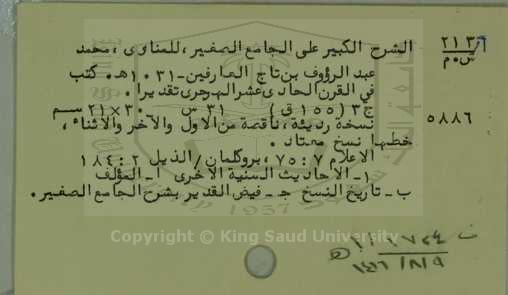 ٢١٣٫أ الشرح الكبير على الجامع الصغير، للمناوى، محمد
س٠م
عبد الرؤوف بن تاج العارفين-١٠٣١هـ. كتب
في القرن الحادى عشر الهجرى تقديرا.
ج٣ (١٥٥ق) ٣١س ٣٠×٢١سم
٥٨٨٦ نسخة رديئة، ناقصة من الاول والآخر والاثناء،
خطها نسخ معتاد.
الاعلام ٧: ٧٥، بروكلمان/الذيل ٢: ١٨٤
١- الاحاديث السنية الاخرى أ- المؤلف
ب- تاريخ النسخ جـ- فيض القدير بشرح الجامع الصغير.
1957
Copyright © King Saud University